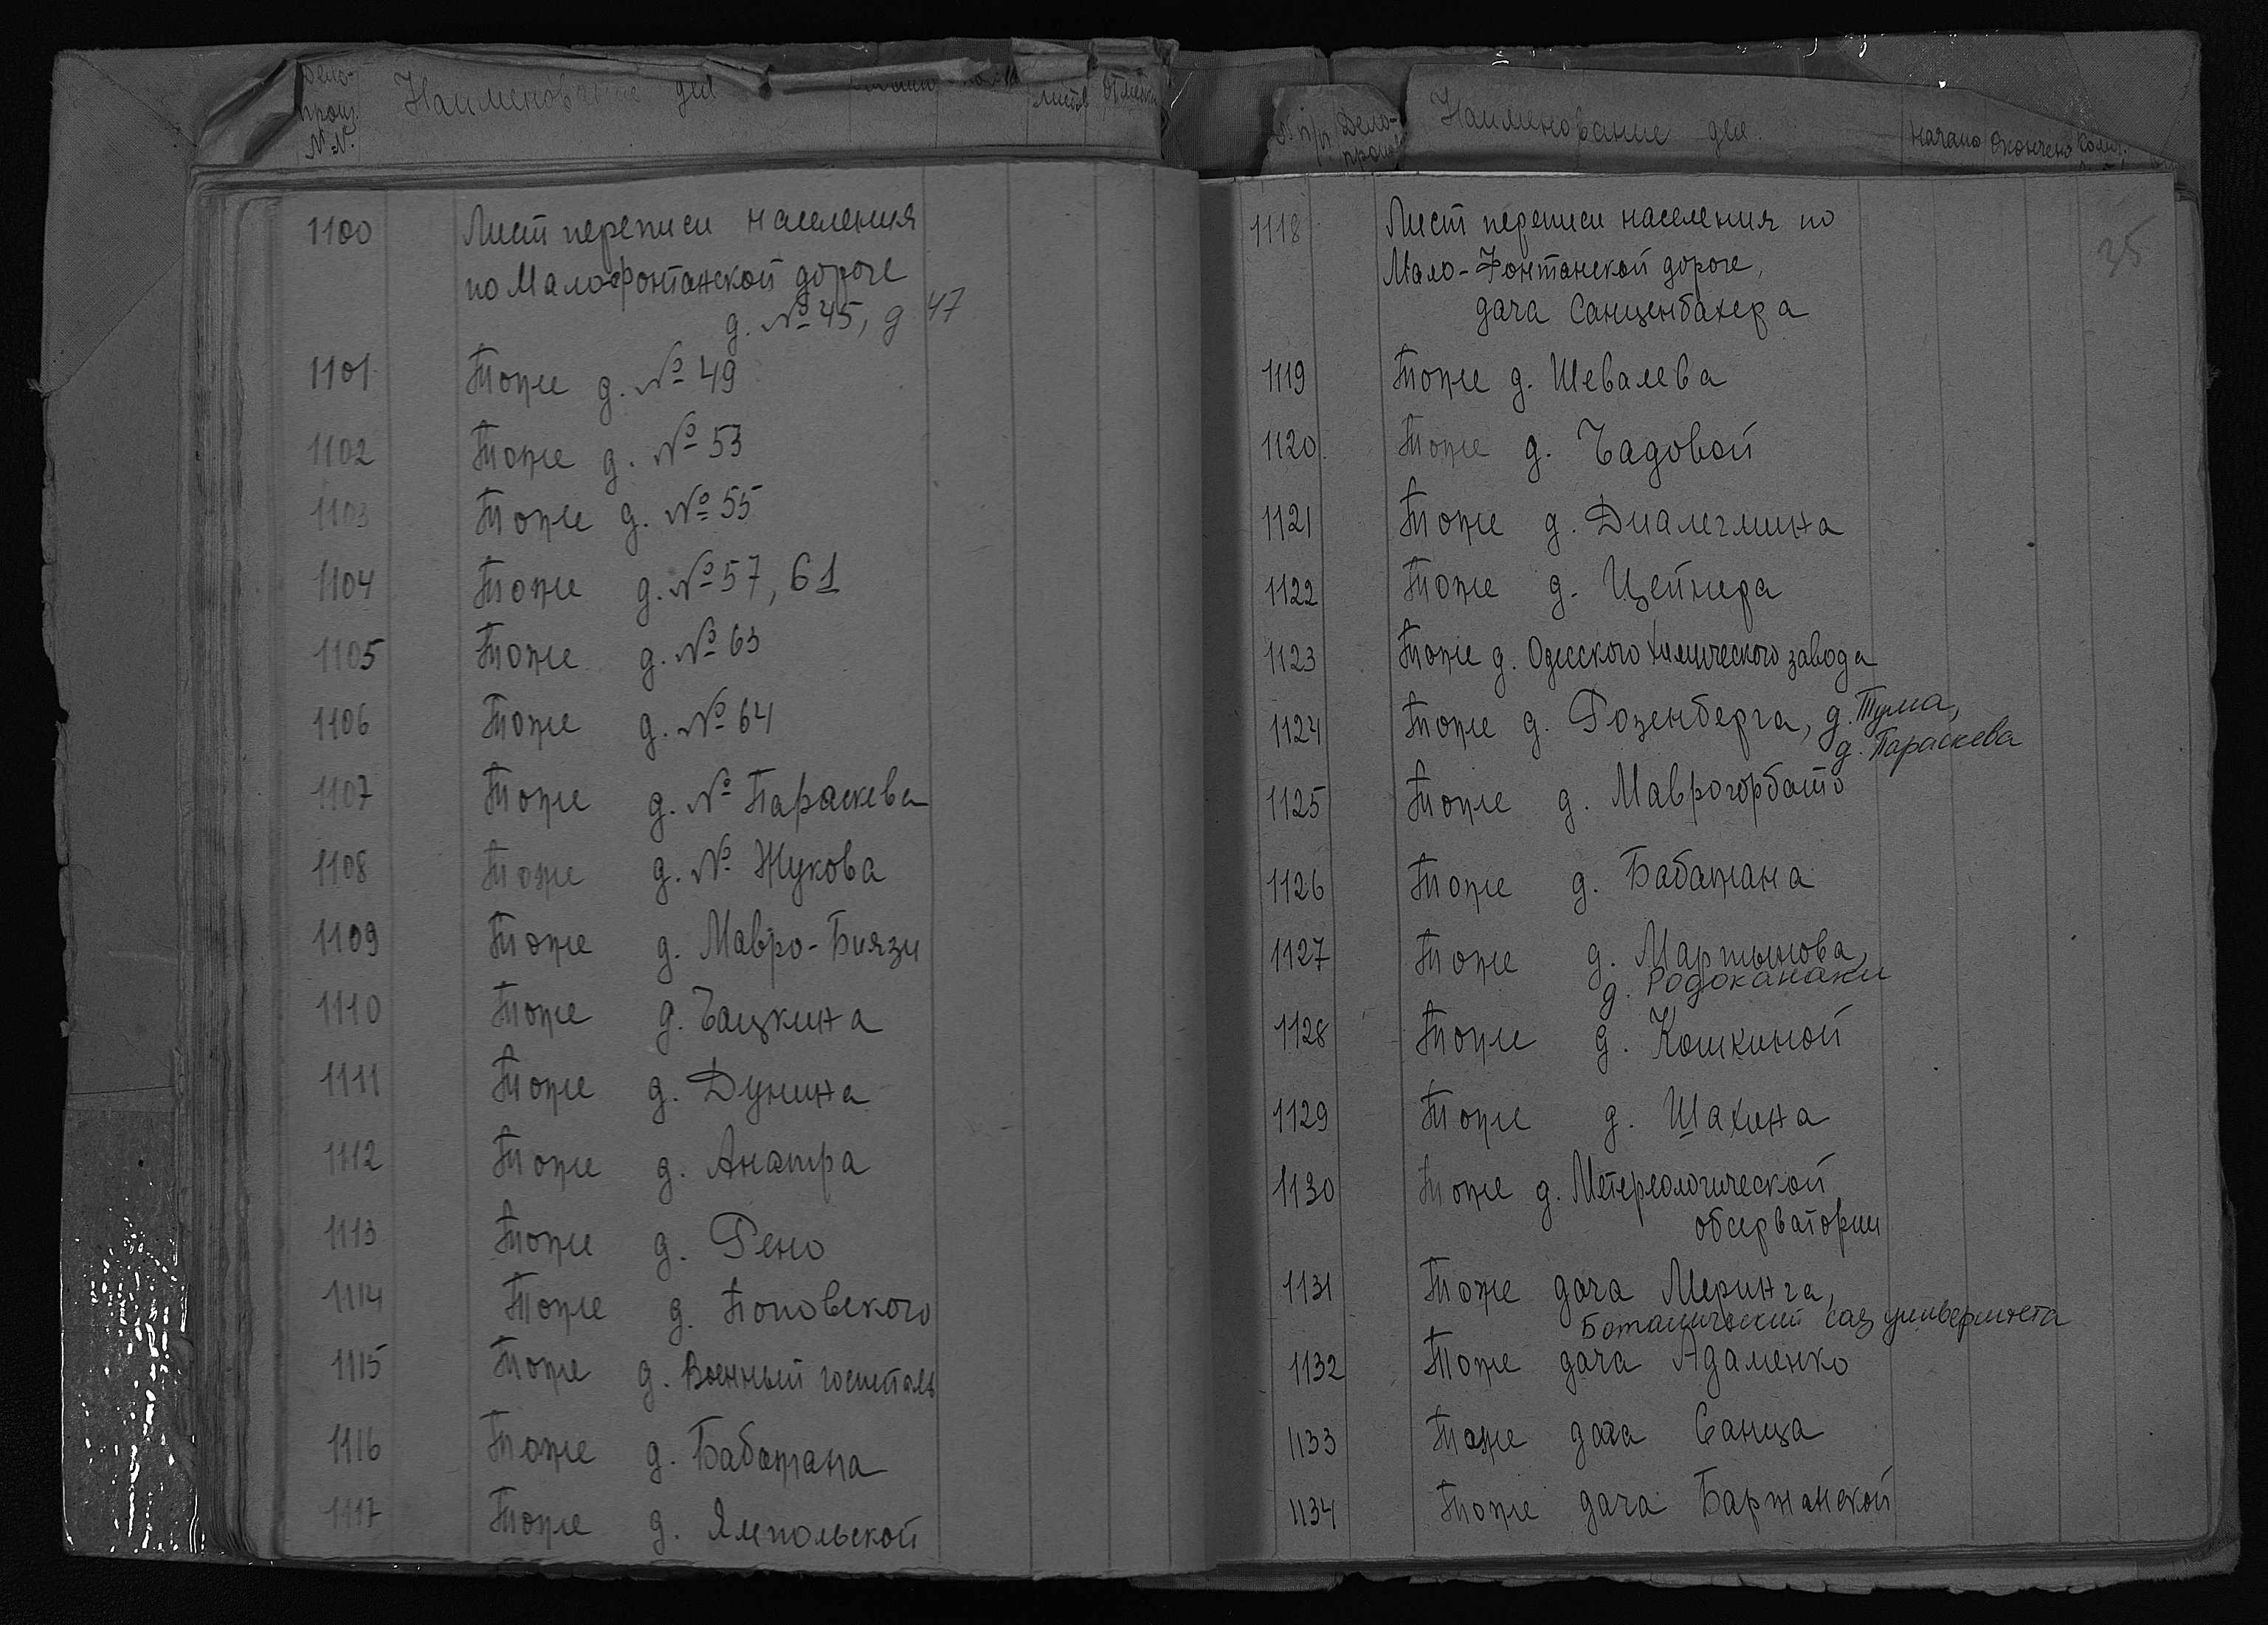 Дело-
произ.
№№
Наименование дел
листов
Отметки
1100 Лист переписи населения
по Малофонтанской дороге
д. № 45, д 47
1101 Тоже д. № 49
1102 Тоже д. № 53
1103 Тоже д. № 55
1104 Тоже д. № 57, 61
1105 Тоже д. № 63
1106 Тоже д. № 64
1107 Тоже д. № Параскева
1108 Тоже д. № Жукова
1109 Тоже д. Мавро-Биязи
1110 Тоже д. Бацкина
1111 Тоже д. Дунина
1112 Тоже д. Анатра
1113 Тоже д. Рено
1114 Тоже д. Поповского
1115 Тоже д. Военный госпиталь
1116 Тоже д. Бабажана
1117 Тоже д. Ямпольской
№ п/п
Дело-
произ
Наименование дел.
Начало Окончено Колич.
35
1118 Лист переписи населения по
Мало-Фонтанской дороге,
дача Санценбахера
1119 Тоже д. Шевалева
1120 Тоже д. Чадовой
1121 Тоже д. Диалегмина
1122 Тоже д. Цейнера
1123 Тоже д. Одесского химического завода
1124 Тоже д. Розенберга, д. Тума,
д. Параскева
1125 Тоже д. Маврогорбато
1126 Тоже д. Бабажана
1127 Тоже д. Мартынова,
д. Родоканаки
1128 Тоже д. Кошкиной
1129 Тоже д. Шахина
1130 Тоже д. Метереологической
обсерватории
1131 Тоже дача Меринга,
Ботанический сад университета
1132 Тоже дача Адаменко
1133 Тоже дача Санца
1134 Тоже дача Баржанской